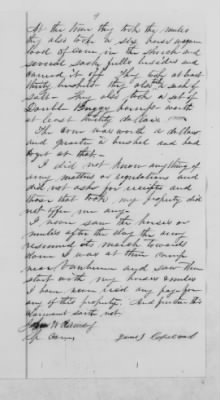 At the time they took the mules
they also took a six horse wagon
load of corn in the shuck and
several sacks full besides and
carried it off They took at least
thirty bushels they also a sack of
salt They also took a set of
Double Buggy harness worth
at least thirty dollars
The corn was worth a dollar
and quarter a bushel and hard
to get at that.
I did not know anything of
army matters or regulations and
did not ask for receipts and
those that took my property did
not offer me any.
I never saw the horses or
mules after the day the army
resumed its march towards
I was at their camp
near and saw them
start with my horses & mules
I have never recd any pay for
any of this property. And further this
claimant saith not.
John W
Sp Com
James J Copeland